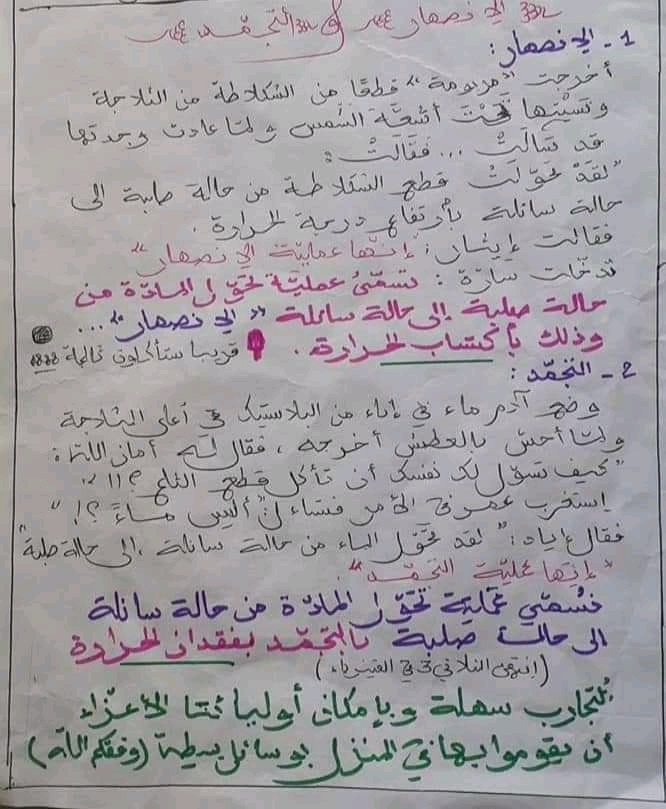 الانصهار و التجمّد
1 - الانصهار :
أخرجت "مريومة" قطعًا من الشكلاطة من الثلاجة
ونسيتها تحت أشعّة الشمس ولمّا عادت وجدتها
قد سالتْ ... فقالتْ :
"لقدْ تحوّلتْ قطع الشكلاطة من حالة صلبة إلى
حالة سائلة بأرتفاع درجة الحرارة.
فقالت إيشان : "إنّها عمليّة الانصهار"
تدخّلت سارّة : تسمّى عمليّة تحوّل المادّة من
حالة صلبة إلى حالة سائلة "الانصهار" ...
وذلك بأكتساب الحرارة . قريبا ستأكلون
2 - التجمّد :
وضع آدم ماء في إناء من البلاستيك في أعلى الثلاجة
ولمّا أحسّ بالعطش أخرجه ، فقال له أماني الله :
"كيف تسوّل لك نفسك أن تأكل قطع الثلج ؟!!".
إستغرب عمر في الأمر فتساءل "أليس ماءً ؟!"
فقال إياد : "لقد تحوّل الماء من حالة سائلة إلى حالة صلبة"
"إنّها عمليّة التجمّد".
نسمّي عمليّة تحوّل المادّة من حالة سائلة
الى حالة صلبة بالتجمّد بفقدان الحرارة
(إنتهى الثلاثي 3 في الفيزياء)
التجارب سهلة وبإمكان أوليائنا الأعزّاء
أن يقوموا بها في المنزل بوسائل بسيطة (وفقكم اللّه)